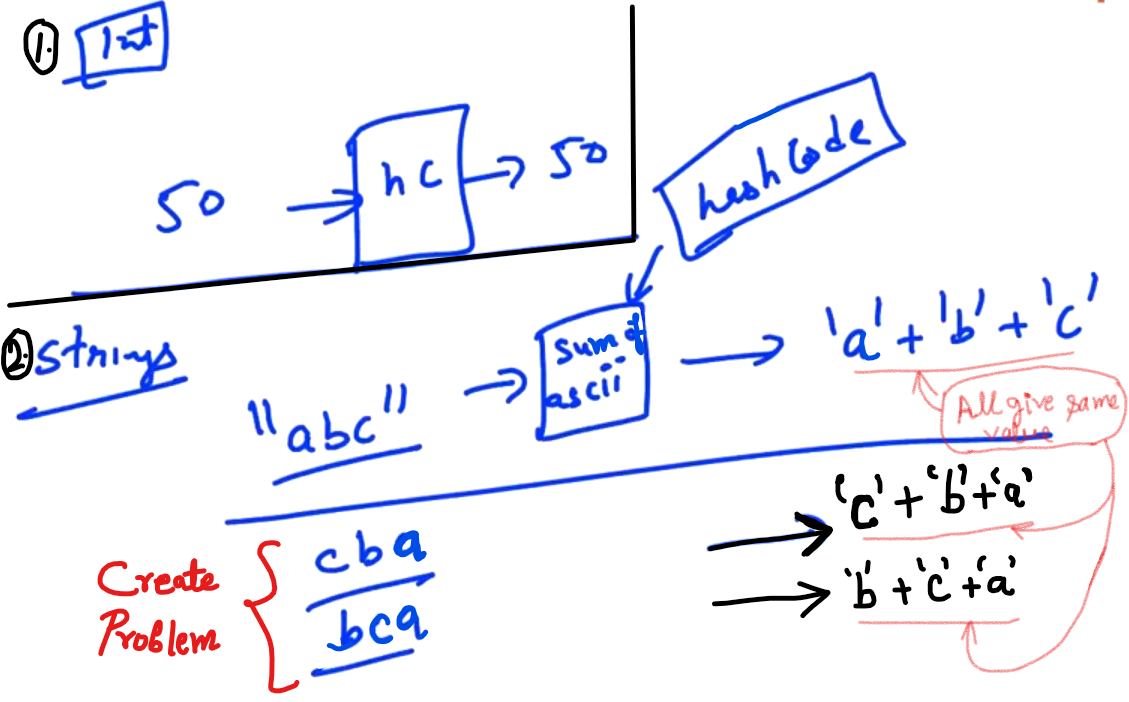 1. Int
50 → hC → 50
hashCode
2. Strings
"abc" → sum of
ascii → 'a' + 'b' + 'c'
All give same
value
Create
Problem
cba → 'c' + 'b' + 'a'
bca → 'b' + 'c' + 'a'